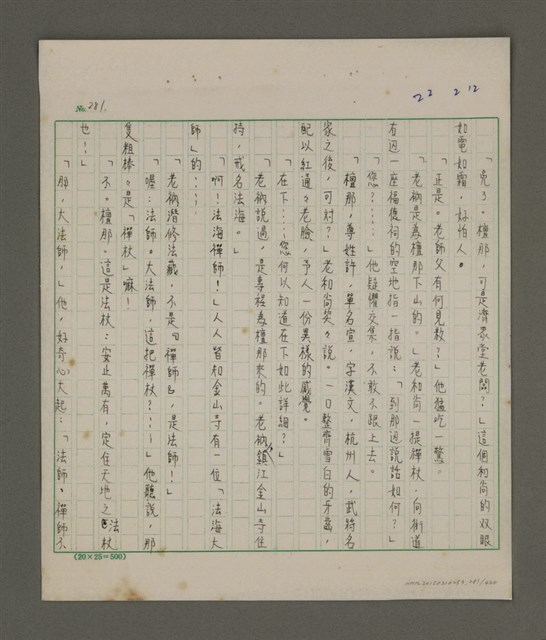 22 2 12
No. 281.
「兜了。檀那,可是濟眾堂老闆?」這個和尚的双眼
如電如霜,好怕人。
「正是。老師父有何見教?」他猛吃一驚。
「老衲是為檀那下山的。」老和尚一提禪杖,向街道
右邊一座福德祠的空地指一指說:「到那邊說話如何?」
「您?⋯⋯」他疑懼交集,不敢不跟上去。
「檀那,尊姓許,單名宣,字漢文,杭州人,武將名
家之後,可对?」老和尚笑々說。一口整齊雪白的牙齒,
配以紅通々老臉,予人一份異樣的感覺。
「在下⋯⋯您何以知道在下如此詳細?」
「老衲說過,是專程為檀那來的。老衲鎮江金山寺住
持,戒名法海。」
「啊!法海禪師!」人人皆知金山寺有一位「法海大
師」的⋯⋯
「老衲潛修法藏,不是『禪師』,是法師!」
「喔:法師。大法師,這把禪杖?⋯⋯」他聽說,那
隻粗棒々是「禪杖」嘛!
「不。檀那。這是法杖:安止萬有,定住天地之法杖
也!」
「那,大法師,」他,好奇心大起:「法師。禪師不
(20×25=500)